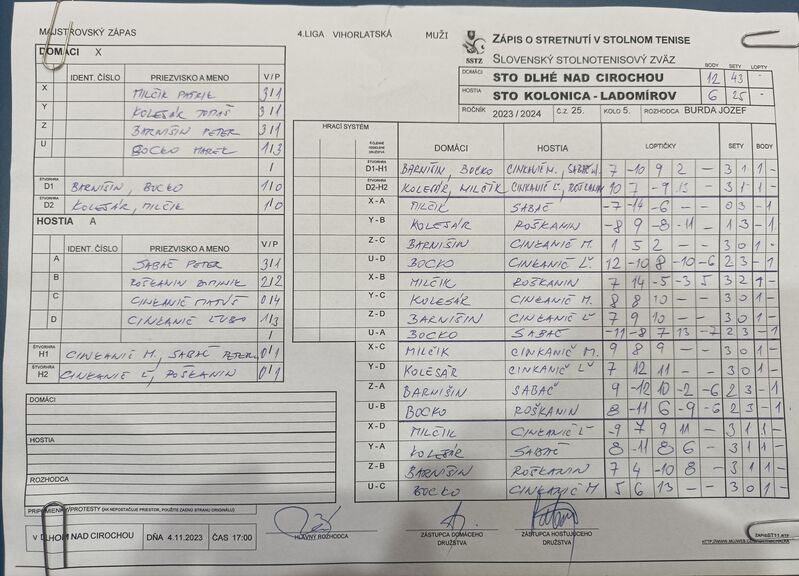 MAJSTROVSKÝ ZÁPAS 4.LIGA VIHORLATSKÁ MUŽI
ZÁPIS O STRETNUTÍ V STOLNOM TENISE
SSTZ SLOVENSKÝ STOLNOTENISOVÝ ZVÄZ
BODY SETY LOPTY
DOMÁCI STO DLHÉ NAD CIROCHOU 12 43 -
HOSTIA STO KOLONICA - LADOMÍROV 6 25 -
ROČNÍK 2023 / 2024 Č.Z. 25. KOLO 5. ROZHODCA BURDA JOZEF
DOMÁCI X
IDENT. ČÍSLO PRIEZVISKO A MENO V / P
X MILČÍK PATRIK 3/1
Y KOLESÁR TOMÁŠ 3/1
Z BARNIŠIN PETER 3/1
U BOCKO MAREK 1/3
/
ŠTVORHRA D1 BARNIŠIN, BOCKO 1/0
ŠTVORHRA D2 KOLESÁR, MILČÍK 1/0
HOSTIA A
IDENT. ČÍSLO PRIEZVISKO A MENO V / P
A SABAČ PETER 3/1
B ROŠKANIN DOMINIK 2/2
C CINKANIČ MATÚŠ 0/4
D CINKANIČ ĽUBO 1/3
/
ŠTVORHRA H1 CINKANIČ M., SABAČ PETER 0/1
ŠTVORHRA H2 CINKANIČ Ľ, ROŠKANIN 0/1
DOMÁCI
HOSTIA
ROZHODCA
PRIPOMIENKY/PROTESTY (AK NEPOSTAČUJE PRIESTOR, POUŽITE ZADNÚ STRANU ORIGINÁLU)
HRACÍ SYSTÉM
DOMÁCI HOSTIA LOPTIČKY SETY BODY
ŠTVORHRA D1-H1 BARNIŠIN, BOCKO CINKANIČ M., SABAČ 7 -10 9 2 — 3 1 1 -
ŠTVORHRA D2-H2 KOLESÁR, MILČÍK CINKANIČ Ľ, ROŠKANIN 10 7 -9 13 — 3 1 1 -
X - A MILČÍK SABAČ -7 -14 -6 — — 0 3 - 1
Y - B KOLESÁR ROŠKANIN -8 9 -8 -11 — 1 3 - 1
Z - C BARNIŠIN CINKANIČ M. 1 5 2 — — 3 0 1 -
U - D BOCKO CINKANIČ Ľ. 12 -10 8 -10 -6 2 3 - 1
X - B MILČÍK ROŠKANIN 7 14 -5 -3 5 3 2 1 -
Y - C KOLESÁR CINKANIČ M. 8 8 10 — — 3 0 1 -
Z - D BARNIŠIN CINKANIČ Ľ 7 9 10 — — 3 0 1 -
U - A BOCKO SABAČ -11 -8 7 13 -7 2 3 - 1
X - C MILČÍK CINKANIČ M. 9 8 9 — — 3 0 1 -
Y - D KOLESÁR CINKANIČ Ľ 7 12 11 — — 3 0 1 -
Z - A BARNIŠIN SABAČ 9 -12 10 -2 -6 2 3 - 1
U - B BOCKO ROŠKANIN 8 -11 6 -9 -6 2 3 - 1
X - D MILČÍK CINKANIČ Ľ -9 7 9 11 — 3 1 1 -
Y - A KOLESÁR SABAČ 8 -11 8 6 — 3 1 1 -
Z - B BARNIŠIN ROŠKANIN 7 4 -10 8 — 3 1 1 -
U - C BOCKO CINKANIČ M 5 6 13 — — 3 0 1 -
V DLHOM NAD CIROCHOU DŇA 4.11.2023 ČAS 17:00
HLAVNÝ ROZHODCA
ZÁSTUPCA DOMÁCEHO DRUŽSTVA
ZÁSTUPCA HOSŤUJÚCEHO DRUŽSTVA
ZAPISST11.RTF